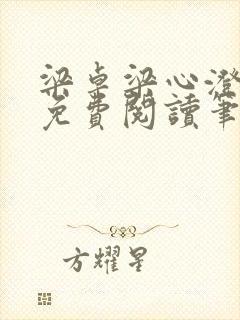 梁卓梁心澄
免費閱讀筆
方耀星